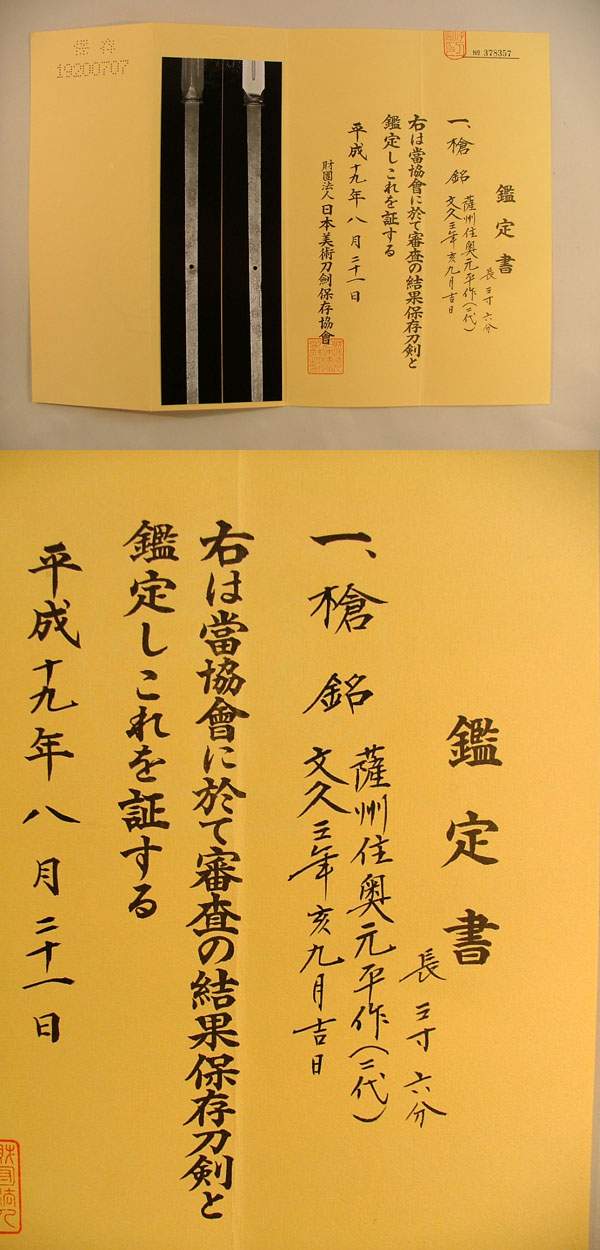 保存
19200707
№ 378357
鑑定書
長 三寸六分
一、槍 銘 薩州住奥元平作(二代)
文久三年亥九月吉日
右は當協會に於て審査の結果保存刀剣と
鑑定しこれを証する
平成十九年八月二十一日
財團法人 日本美術刀剣保存協會
鑑定書
長 三寸六分
一、槍 銘 薩州住奥元平作(二代)
文久三年亥九月吉日
右は當協會に於て審査の結果保存刀剣と
鑑定しこれを証する
平成十九年八月二十一日